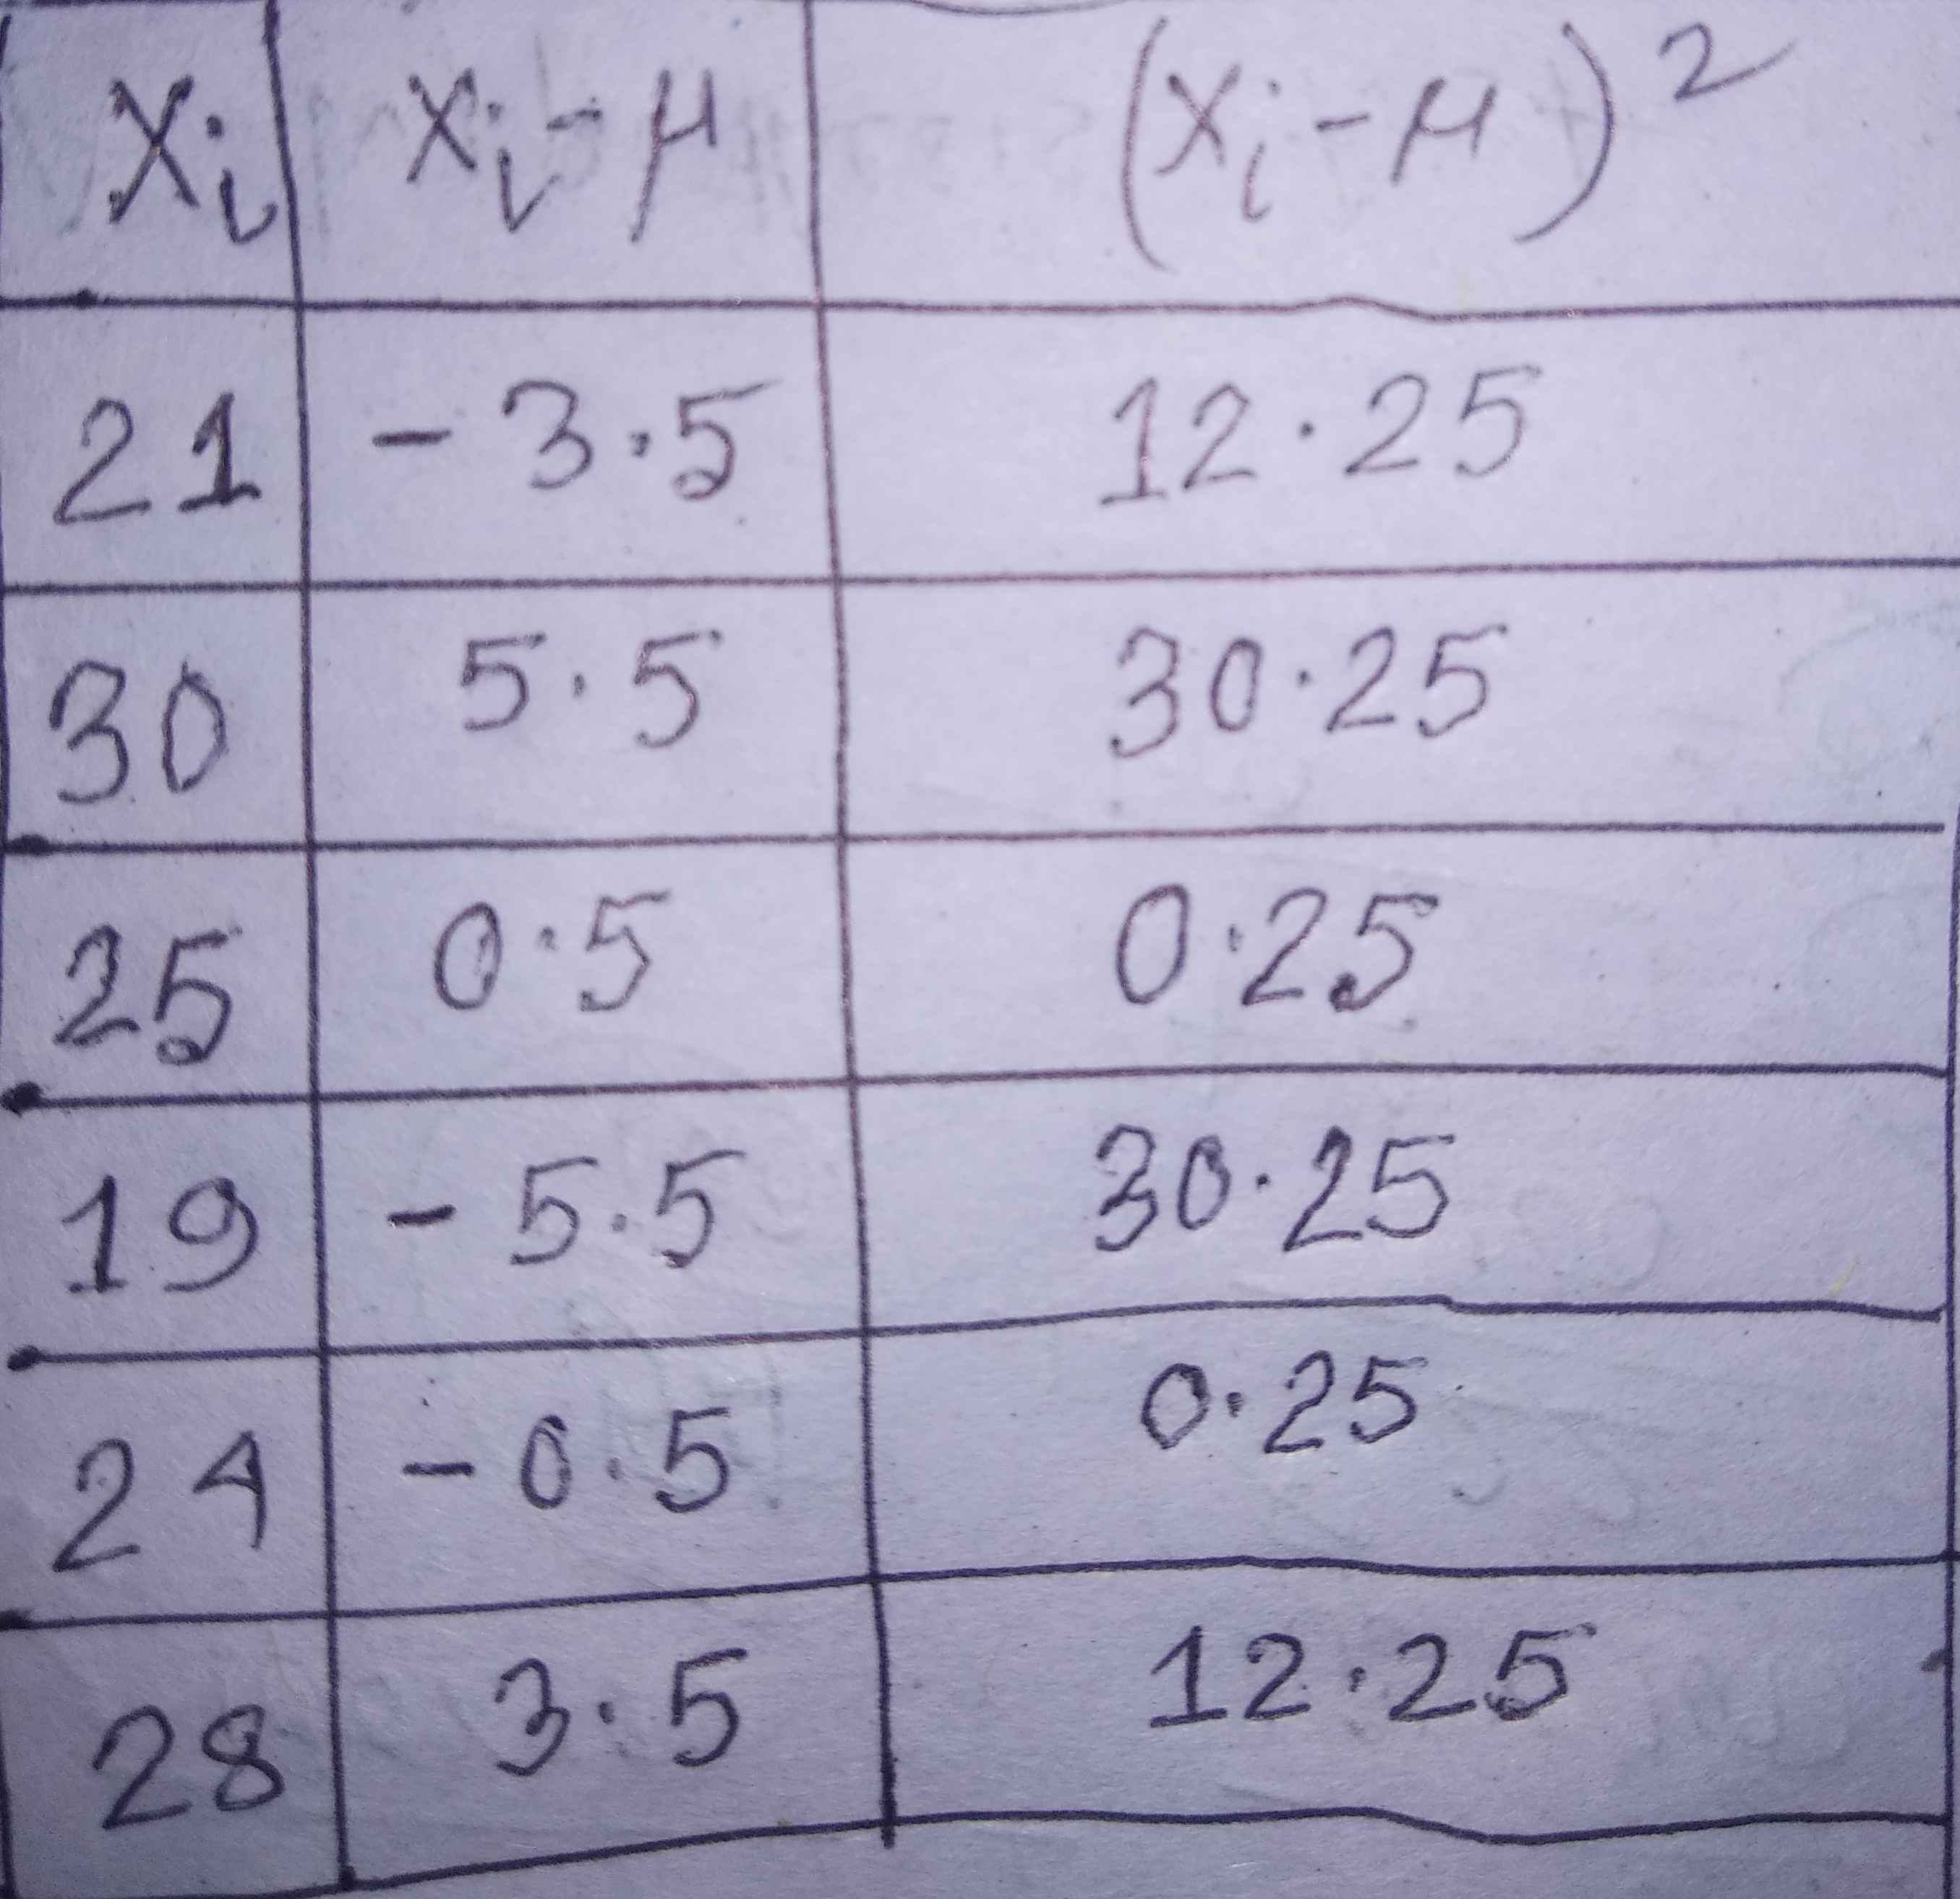 xi xi-μ (xi-μ)²
21 -3.5 12.25
30 5.5 30.25
25 0.5 0.25
19 -5.5 30.25
24 -0.5 0.25
28 3.5 12.25